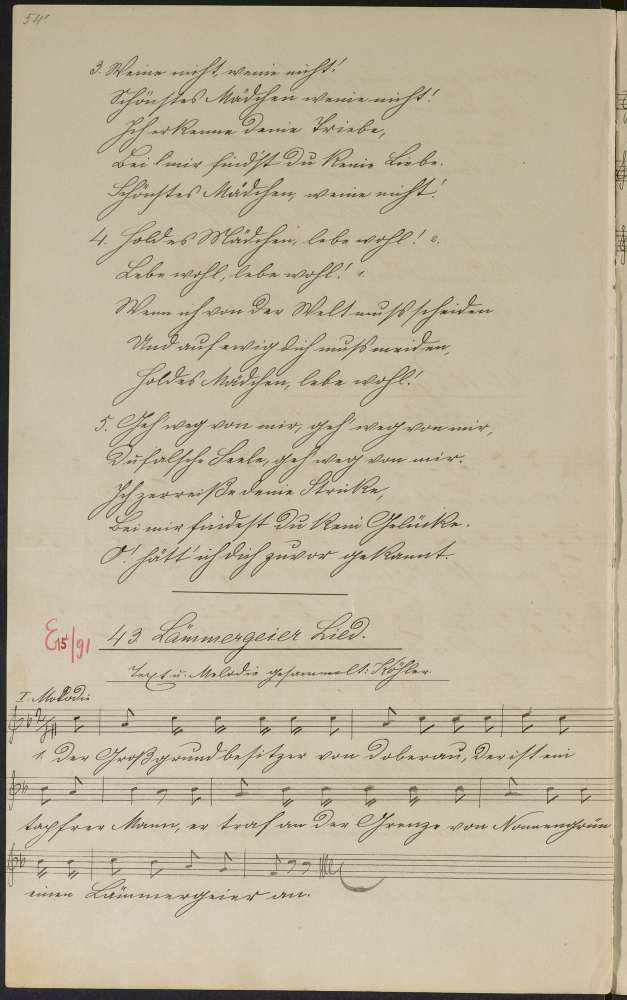 54'
3. Weine nicht, weine nicht!
Schönstes Mädchen weine nicht!
Ich erkenne deine Triebe,
Bei mir find'st du keine Liebe.
Schönstes Mädchen, weine nicht!
4. Holdes Mädchen, lebe wohl!
Lebe wohl, lebe wohl!
Wenn ich von der Welt muss scheiden
Und auf ewig dich muss meiden,
Holdes Mädchen, lebe wohl!
5. Geh weg von mir, geh' weg von mir,
Du falsche Seele, geh' weg von mir.
Ich zerreiße deine Stricke,
Bei mir findest du kein Glücke.
O! hätt' ich dich zuvor gekannt.
E15/91
43 Lämmergeier Lied.
Text u. Melodie gesammelt: Köhler.
I. Melodie
1. Der Großgrundbesitzer von Doberau, der ist ein
tapfrer Mann, er traf an der Grenze von Nonnengrün
einen Lämmergeier an.